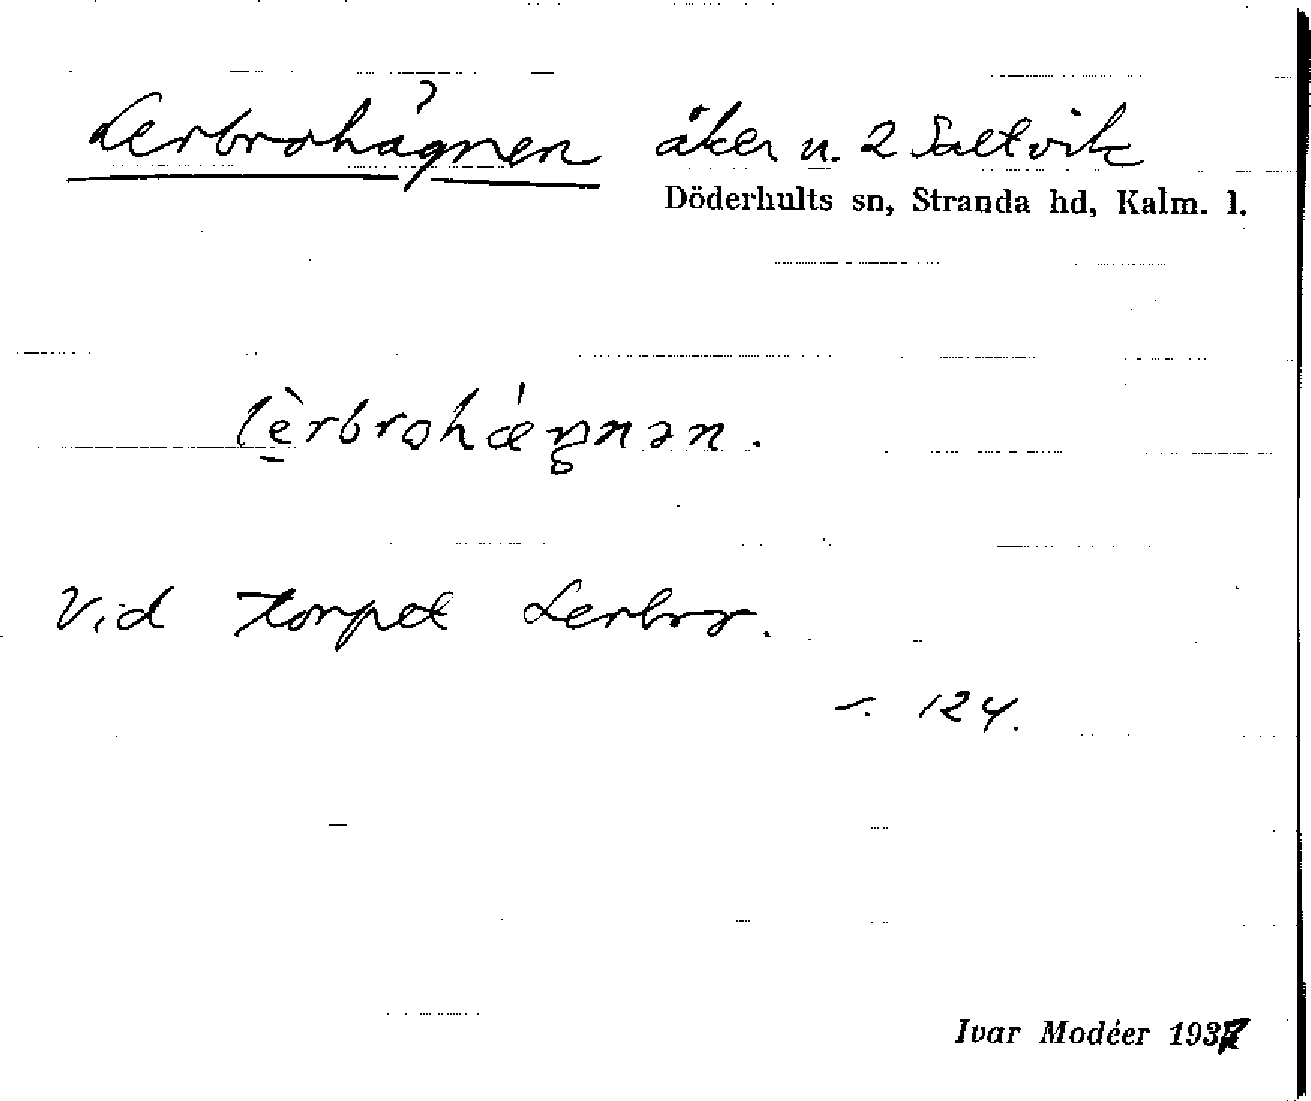 Lerbrohägnen åker u. 2 Saltvik
Döderhults sn, Stranda hd, Kalm. l.
lèrbrohǽŋnən.
Vid torpet Lerbro.
124.
Ivar Modéer 1937